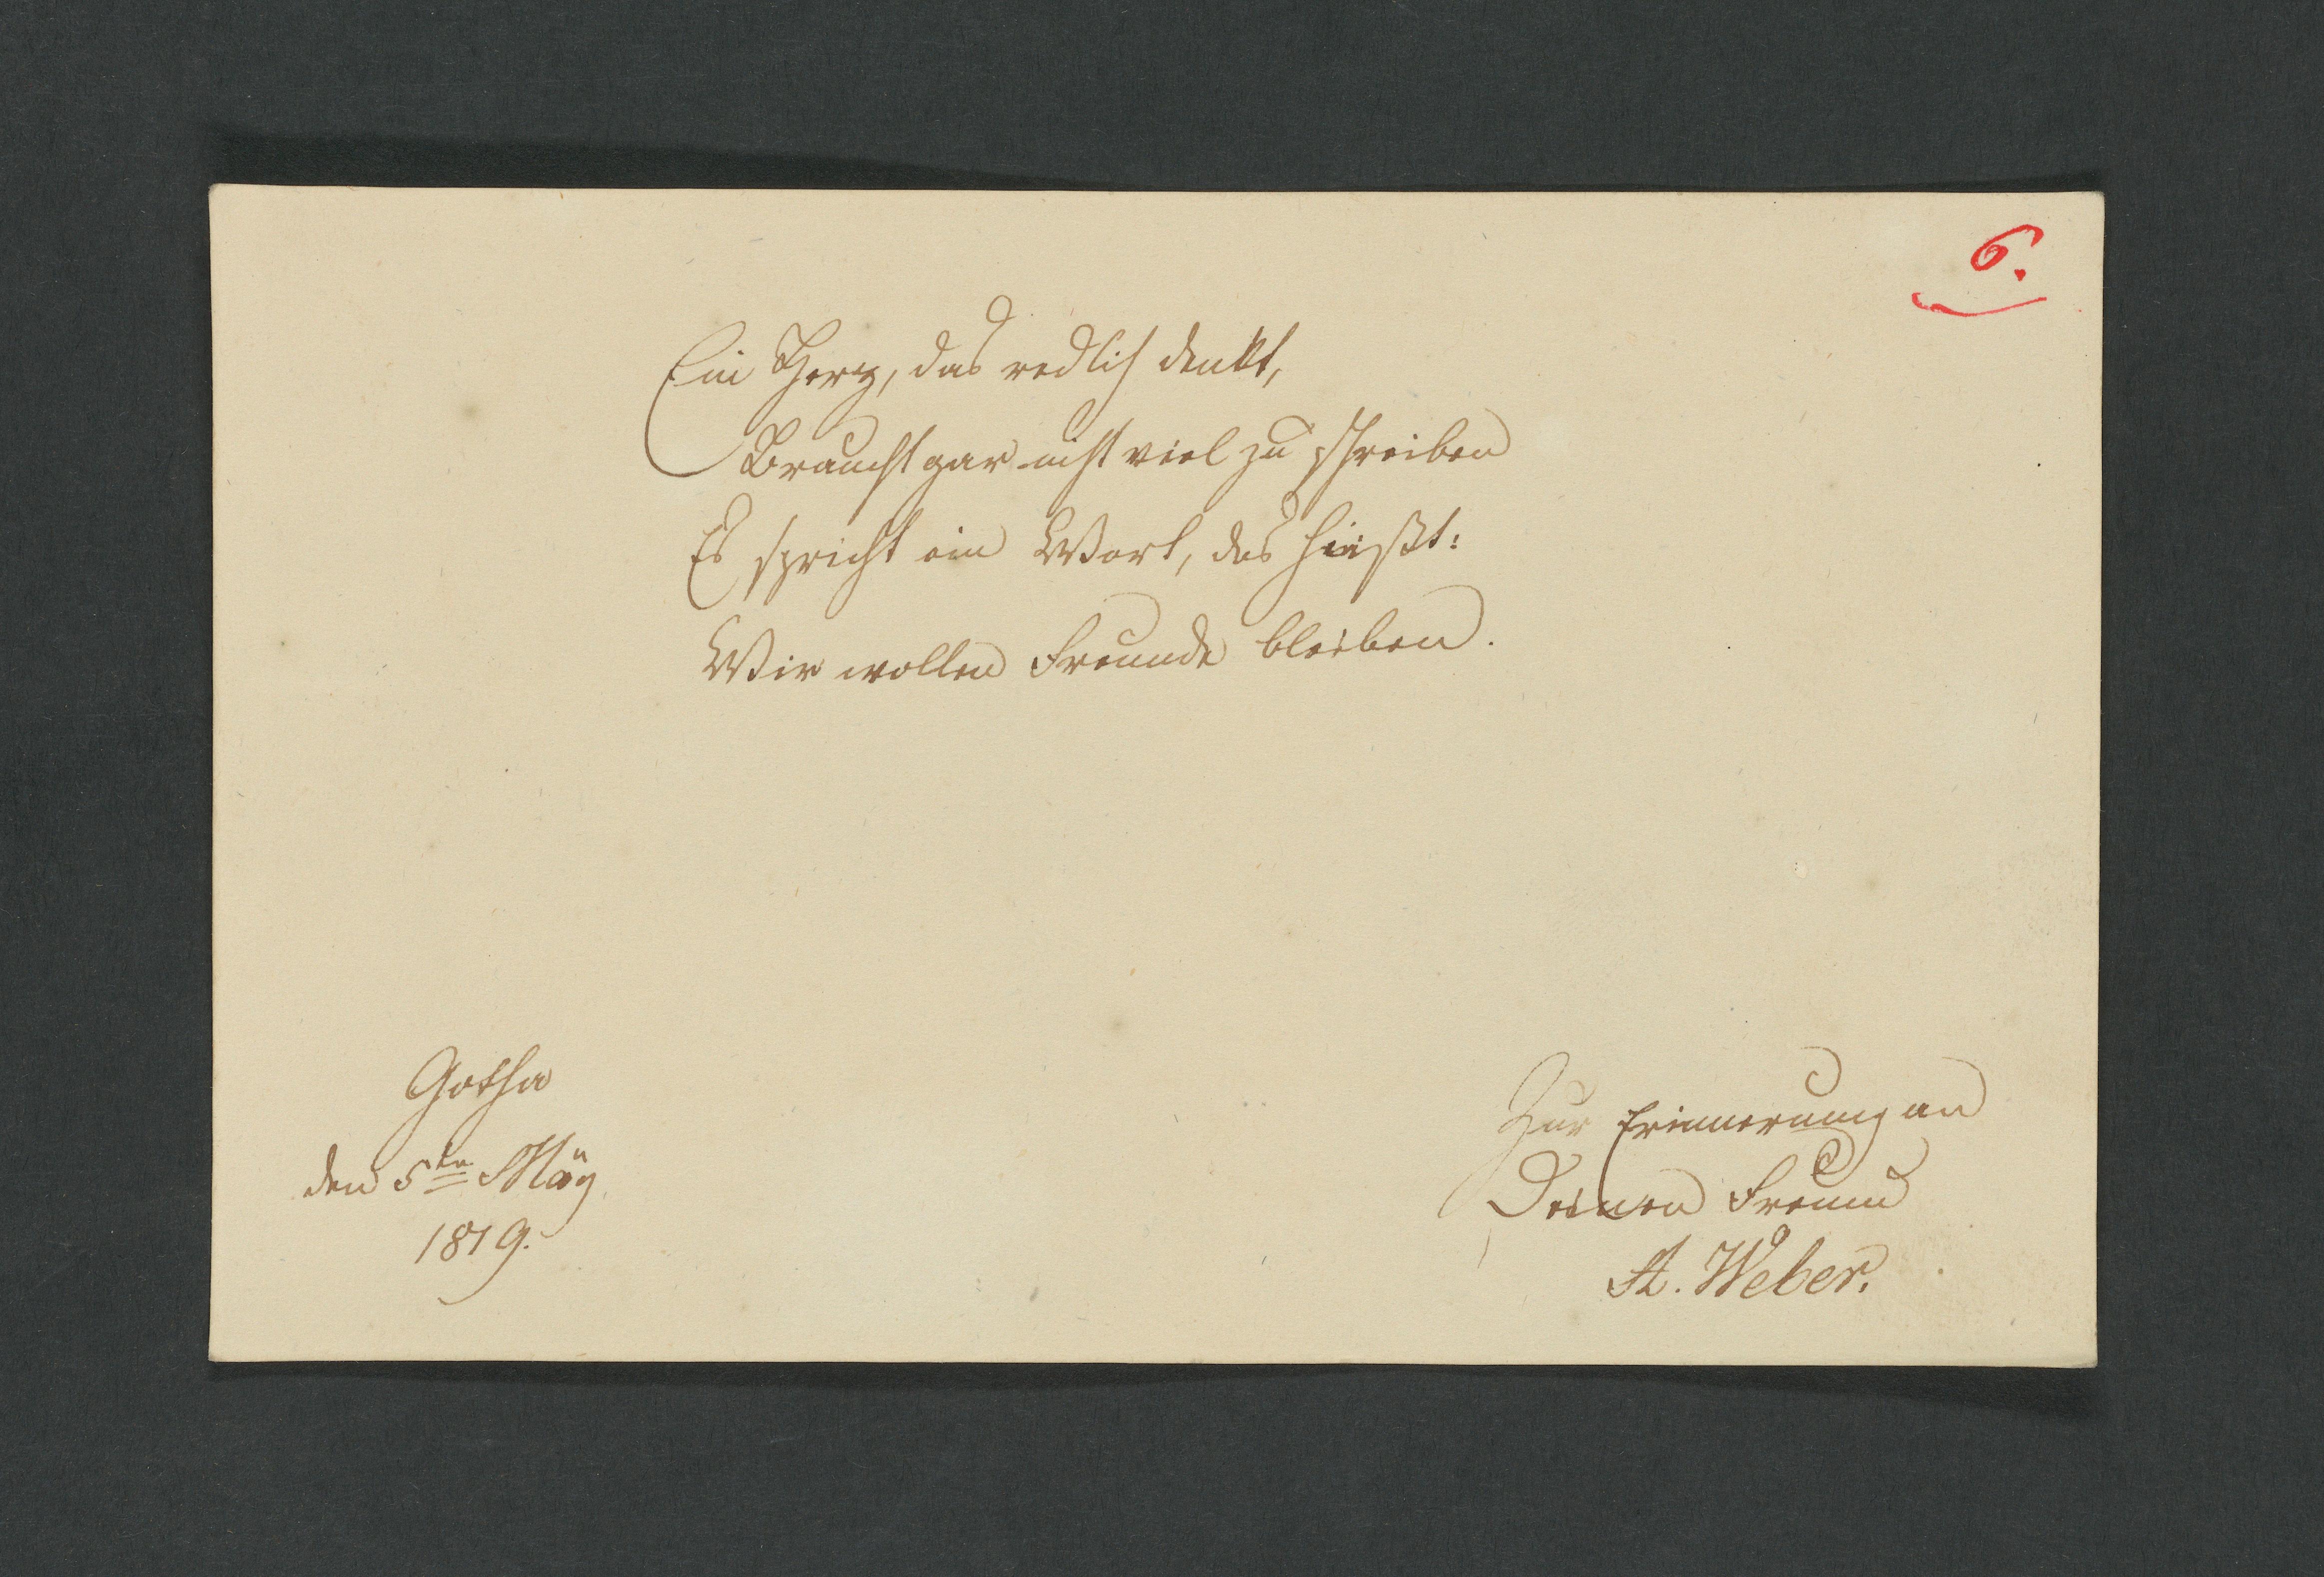 6.
Ein Herz, das redlich denkt,
Braucht gar nicht viel zu schreiben
Es spricht ein Wort, das heißt:
Wir wollen Freunde bleiben.
Gotha
den 5ten May
1819.
Zur Erinnerung an
Deinen Freund
A. Weber.